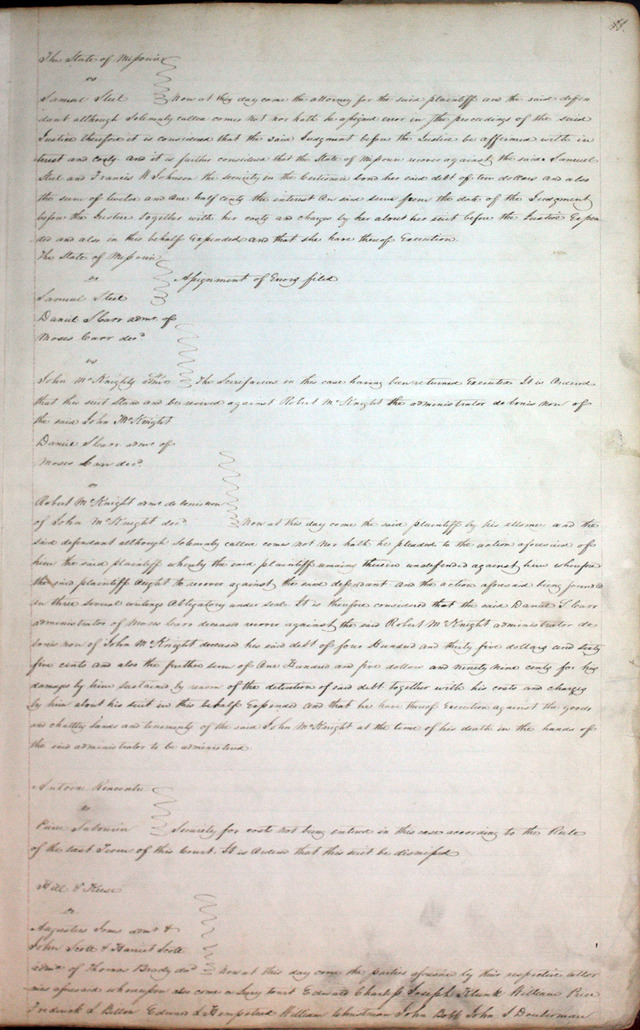 The State of Missouri
vs
Samuel Steel Now at this day come the attorney for the said plaintiff and the said defen
dant although Solemnly called comes not nor hath he assigned error in the proceedings of the said
Justice therefore it is considered that the said Judgment before the Justice be affirmed with in
terest and costs and it is further considered that the State of Missouri recover against the said Samuel
Steel and Francis W Johnson the security in the Certiorari bond her said debt of ten dollars and also
the sum of twelve and one half cents the interest on said sum from the date of the Judgment
before the Justice together with her costs and charges by her about her suit before the Justice Expen
ded and also in this behalf Expended and that she have thereof Execution
The State of Missouri
vs Assignment of Errors filed
Samuel Steel
Daniel S Carr admr. of
Moses Carr decd.
vs
John McKnights The Scirefacias in this case having been returned Executed It is Ordered
that this suit Stand and be revived against Robert McKnight the administrator de bonis non of
the said John McKnight
Daniel S Carr admr. of
Moses Carr decd.
vs
Robert McKnight admr. de bonis non
of John McKnight decd. Now at this day come the said plaintiff by his attorney and the
said defendant although Solemnly called comes not nor hath he pleaded to the action aforesaid of
him the said plaintiff whereby the said plaintiff remains therein undefended against him wherefore
the said plaintiff Ought to recover against the said defendant and the action aforesaid being founded
on three several writings Obligatory under seal It is therefore considered that the said Daniel S. Carr
administrator of Moses Carr deceased recover against the said Robert McKnight administrator de
bonis non of John McKnight deceased his said debt of four Hundred and thirty five dollars and sixty
five cents and also the further sum of One Hundred and five dollars and ninety nine cents for his
damages by him sustained by reason of the detention of said debt together with his costs and charges
by him about his suit in this behalf Expended and that he have thereof Execution against the goods
and chattels lands and tenements of the said John McKnight at the time of his death in the hands of
the said administrator to be administered
Antoine
vs
Security for costs not being entered in this case according to the Rule
of the last Term of this Court. It is Ordered that this suit be dismissed
Hill & Keese
vs
Augustus Jones admr. &
John Scott & Harriet Scott
admr. of Thomas Brady decd. Now at this day come the parties aforesaid by their respective attor
nies aforesaid whereupon also come a Jury towit Edward Charless Joseph Klunk William Price
Frederick L Billon Edward S Hempstead William Christman John Bobb John S